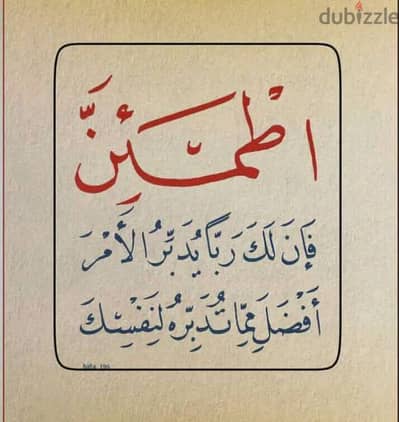 dubizzle
اطْمَئِنَّ
فَإِنَ لَكَ رَبًّا يُدَبِّرُ الأَمْرَ
أَفْضَلَ مِمَّا تُدَبِّرُهُ لِنَفْسِكَ